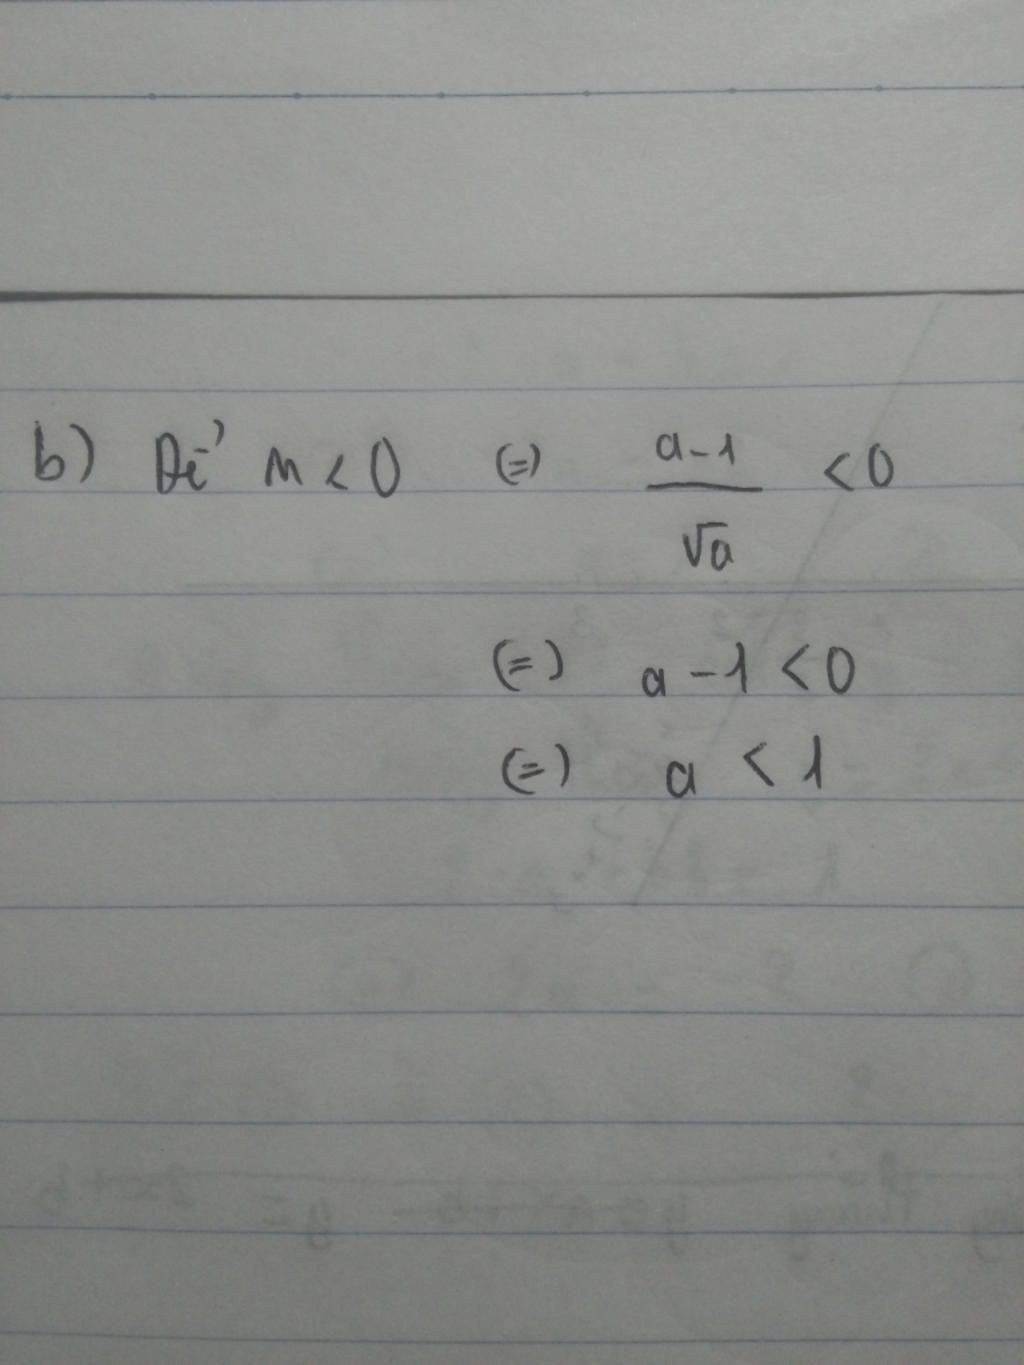 b) Để M < 0 (=) a-1/√a < 0
(=) a - 1 < 0
(=) a < 1